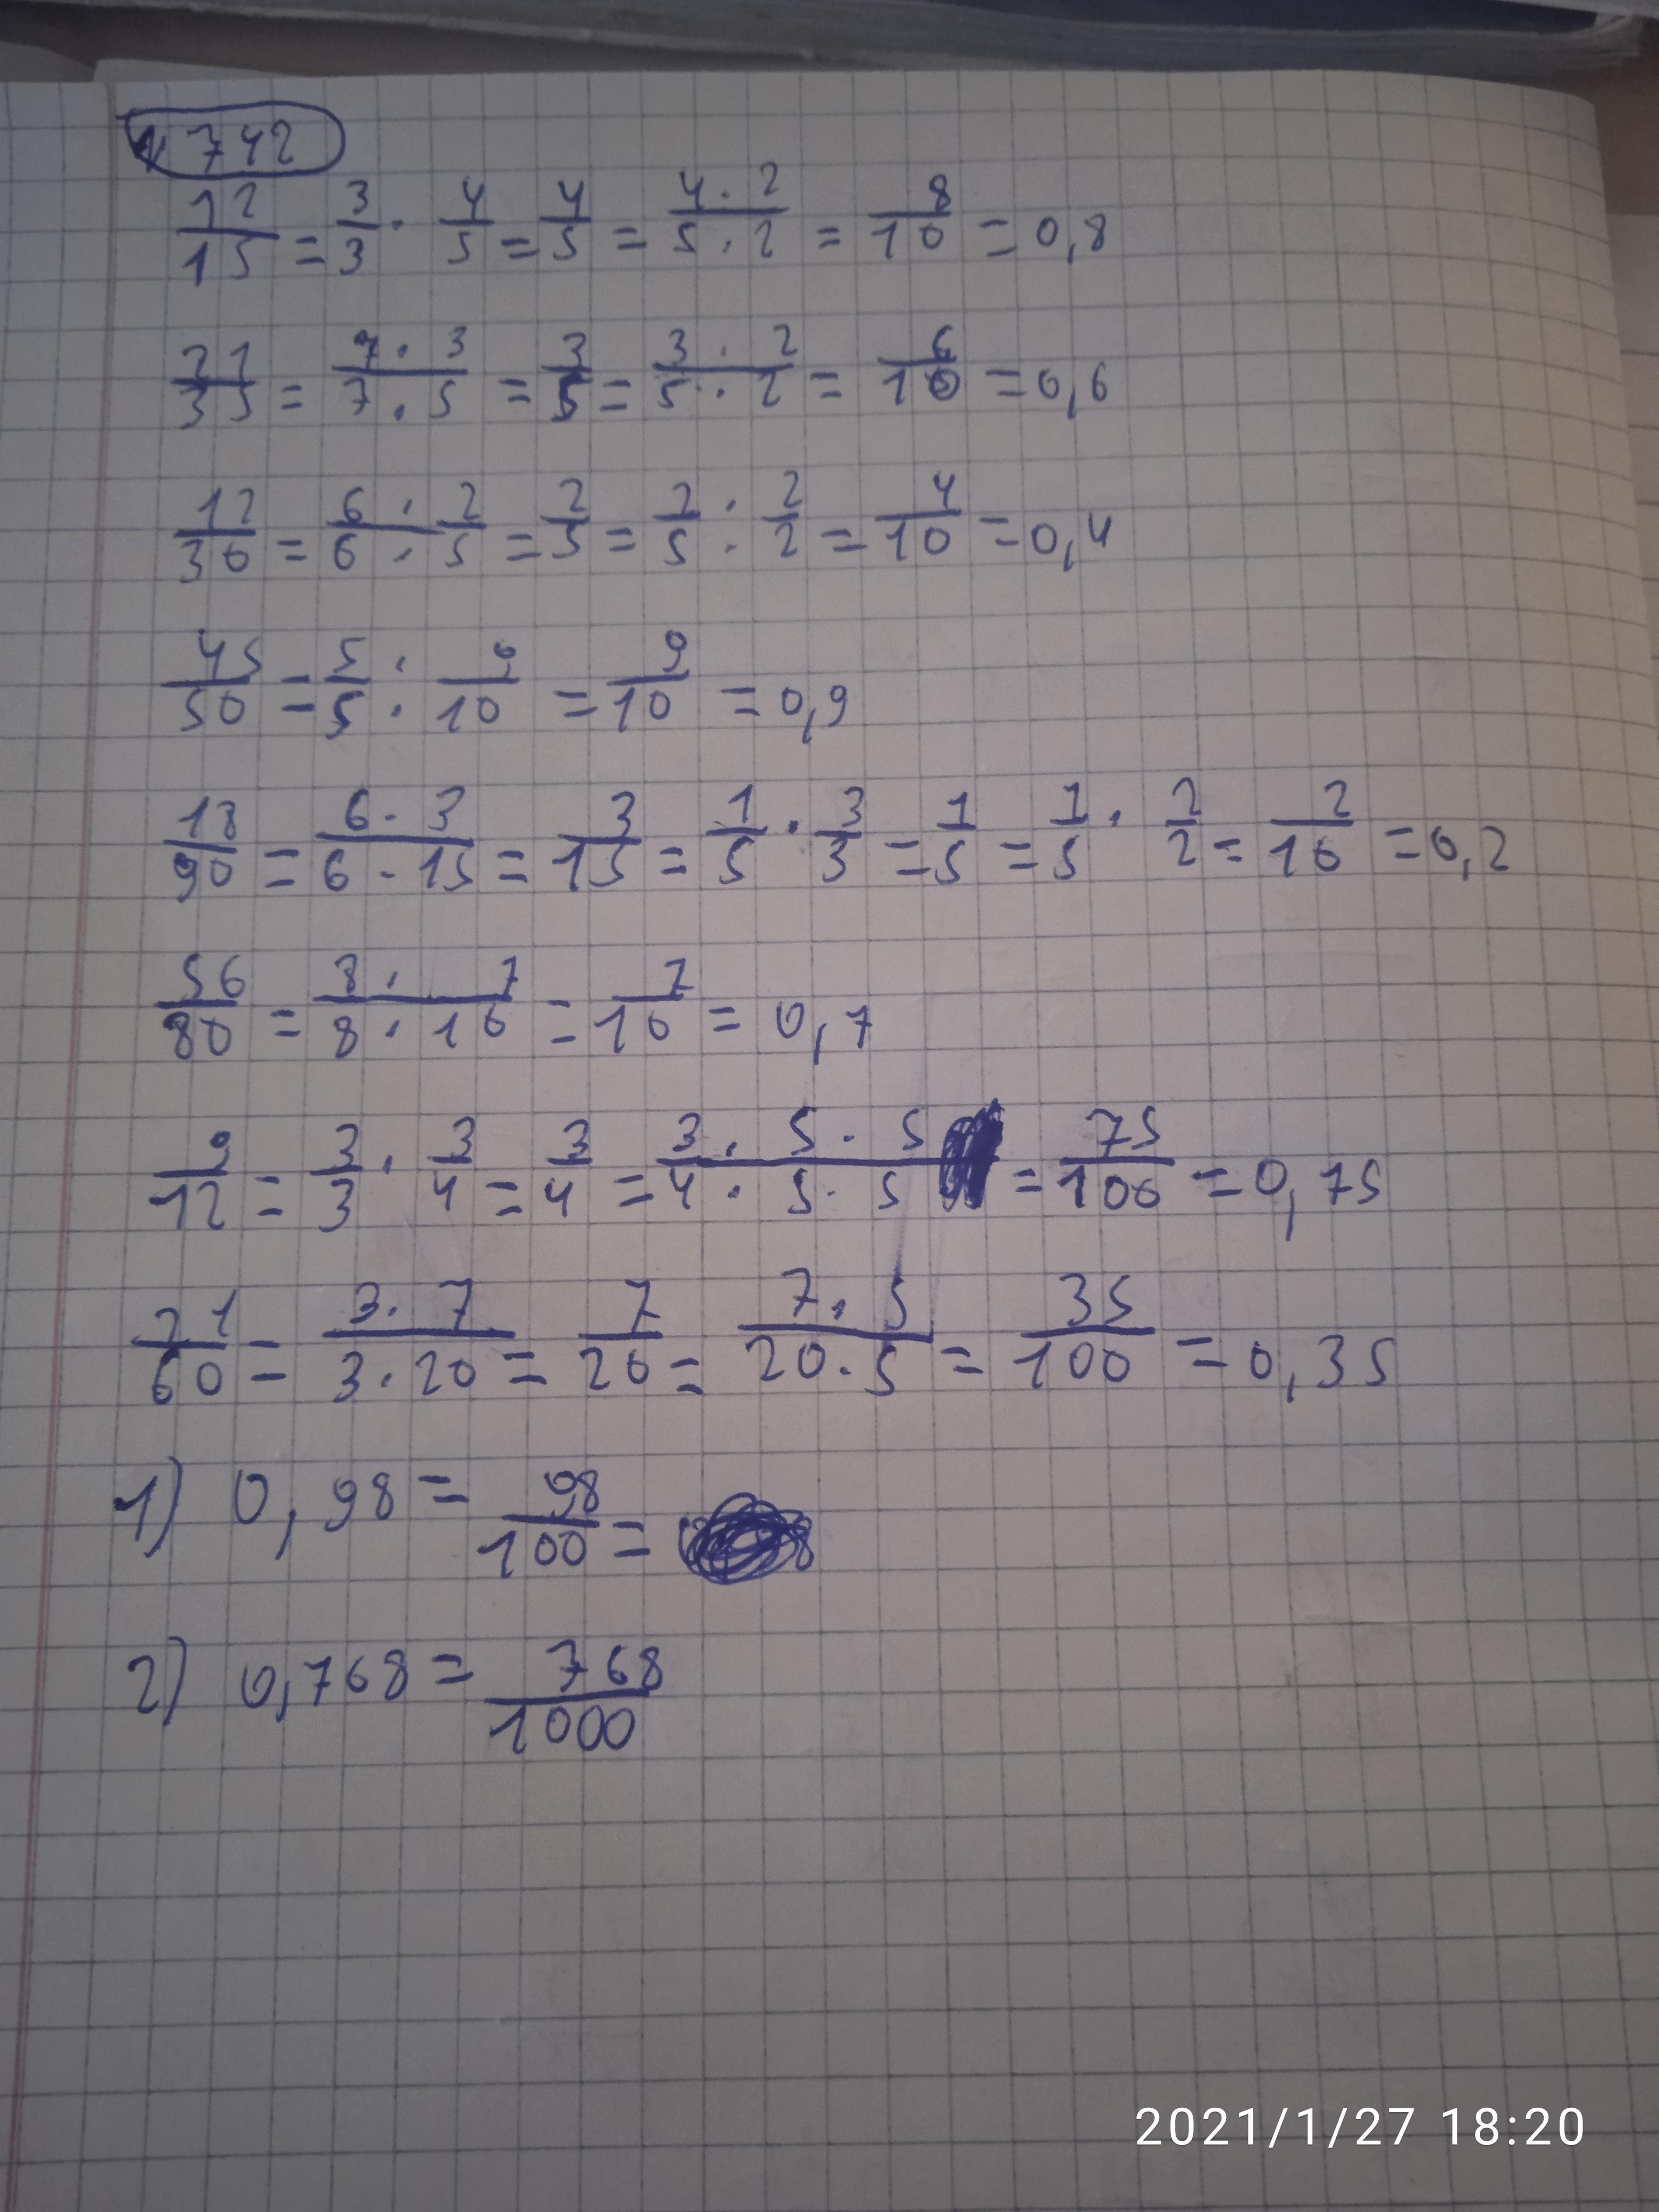 № 742
12/15 = 3/3 · 4/5 = 4/5 = 4·2/5·2 = 8/10 = 0,8
21/35 = 7·3/7·5 = 3/5 = 3·2/5·2 = 6/10 = 0,6
12/30 = 6·2/6·5 = 2/5 = 2/5 · 2/2 = 4/10 = 0,4
45/50 = 5/5 · 9/10 = 9/10 = 0,9
18/90 = 6·3/6·15 = 3/15 = 1/5 · 3/3 = 1/5 = 1/5 · 2/2 = 2/10 = 0,2
56/80 = 8·7/8·10 = 7/10 = 0,7
9/12 = 3/3 · 3/4 = 3/4 = 3·5·5/4·5·5 = 75/100 = 0,75
21/60 = 3·7/3·20 = 7/20 = 7·5/20·5 = 35/100 = 0,35
1) 0,98 = 98/100 =
2) 0,768 = 768/1000
2021/1/27 18:20